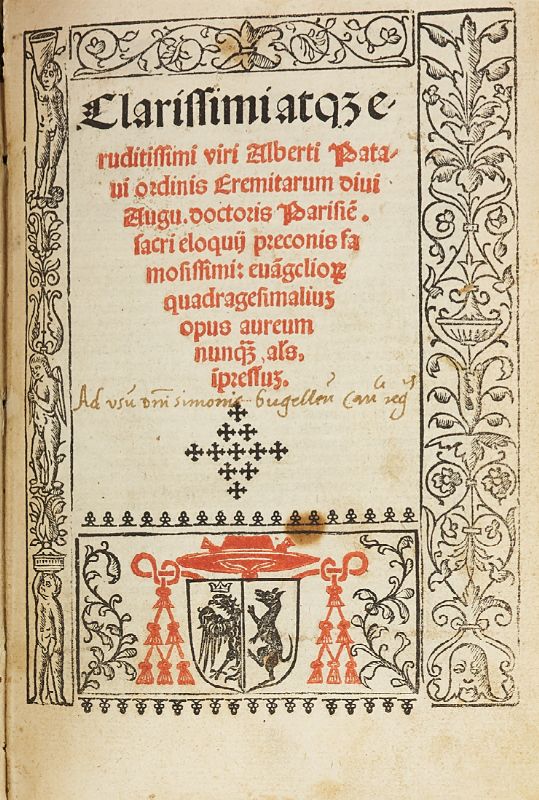 Clarissimi atqꝫ e-
ruditissimi viri Alberti Pata-
ui ordinis Eremitarum diui
Augu. doctoris Parisiẽ.
sacri eloquij preconis fa
mosissimi: euãgelioꝝ
quadragesimaliuꝫ
opus aureum
nunqꝫ̃ als.
ĩpressuꝫ.
Ad usũ dñi simonis bugelleñ Cañ reg